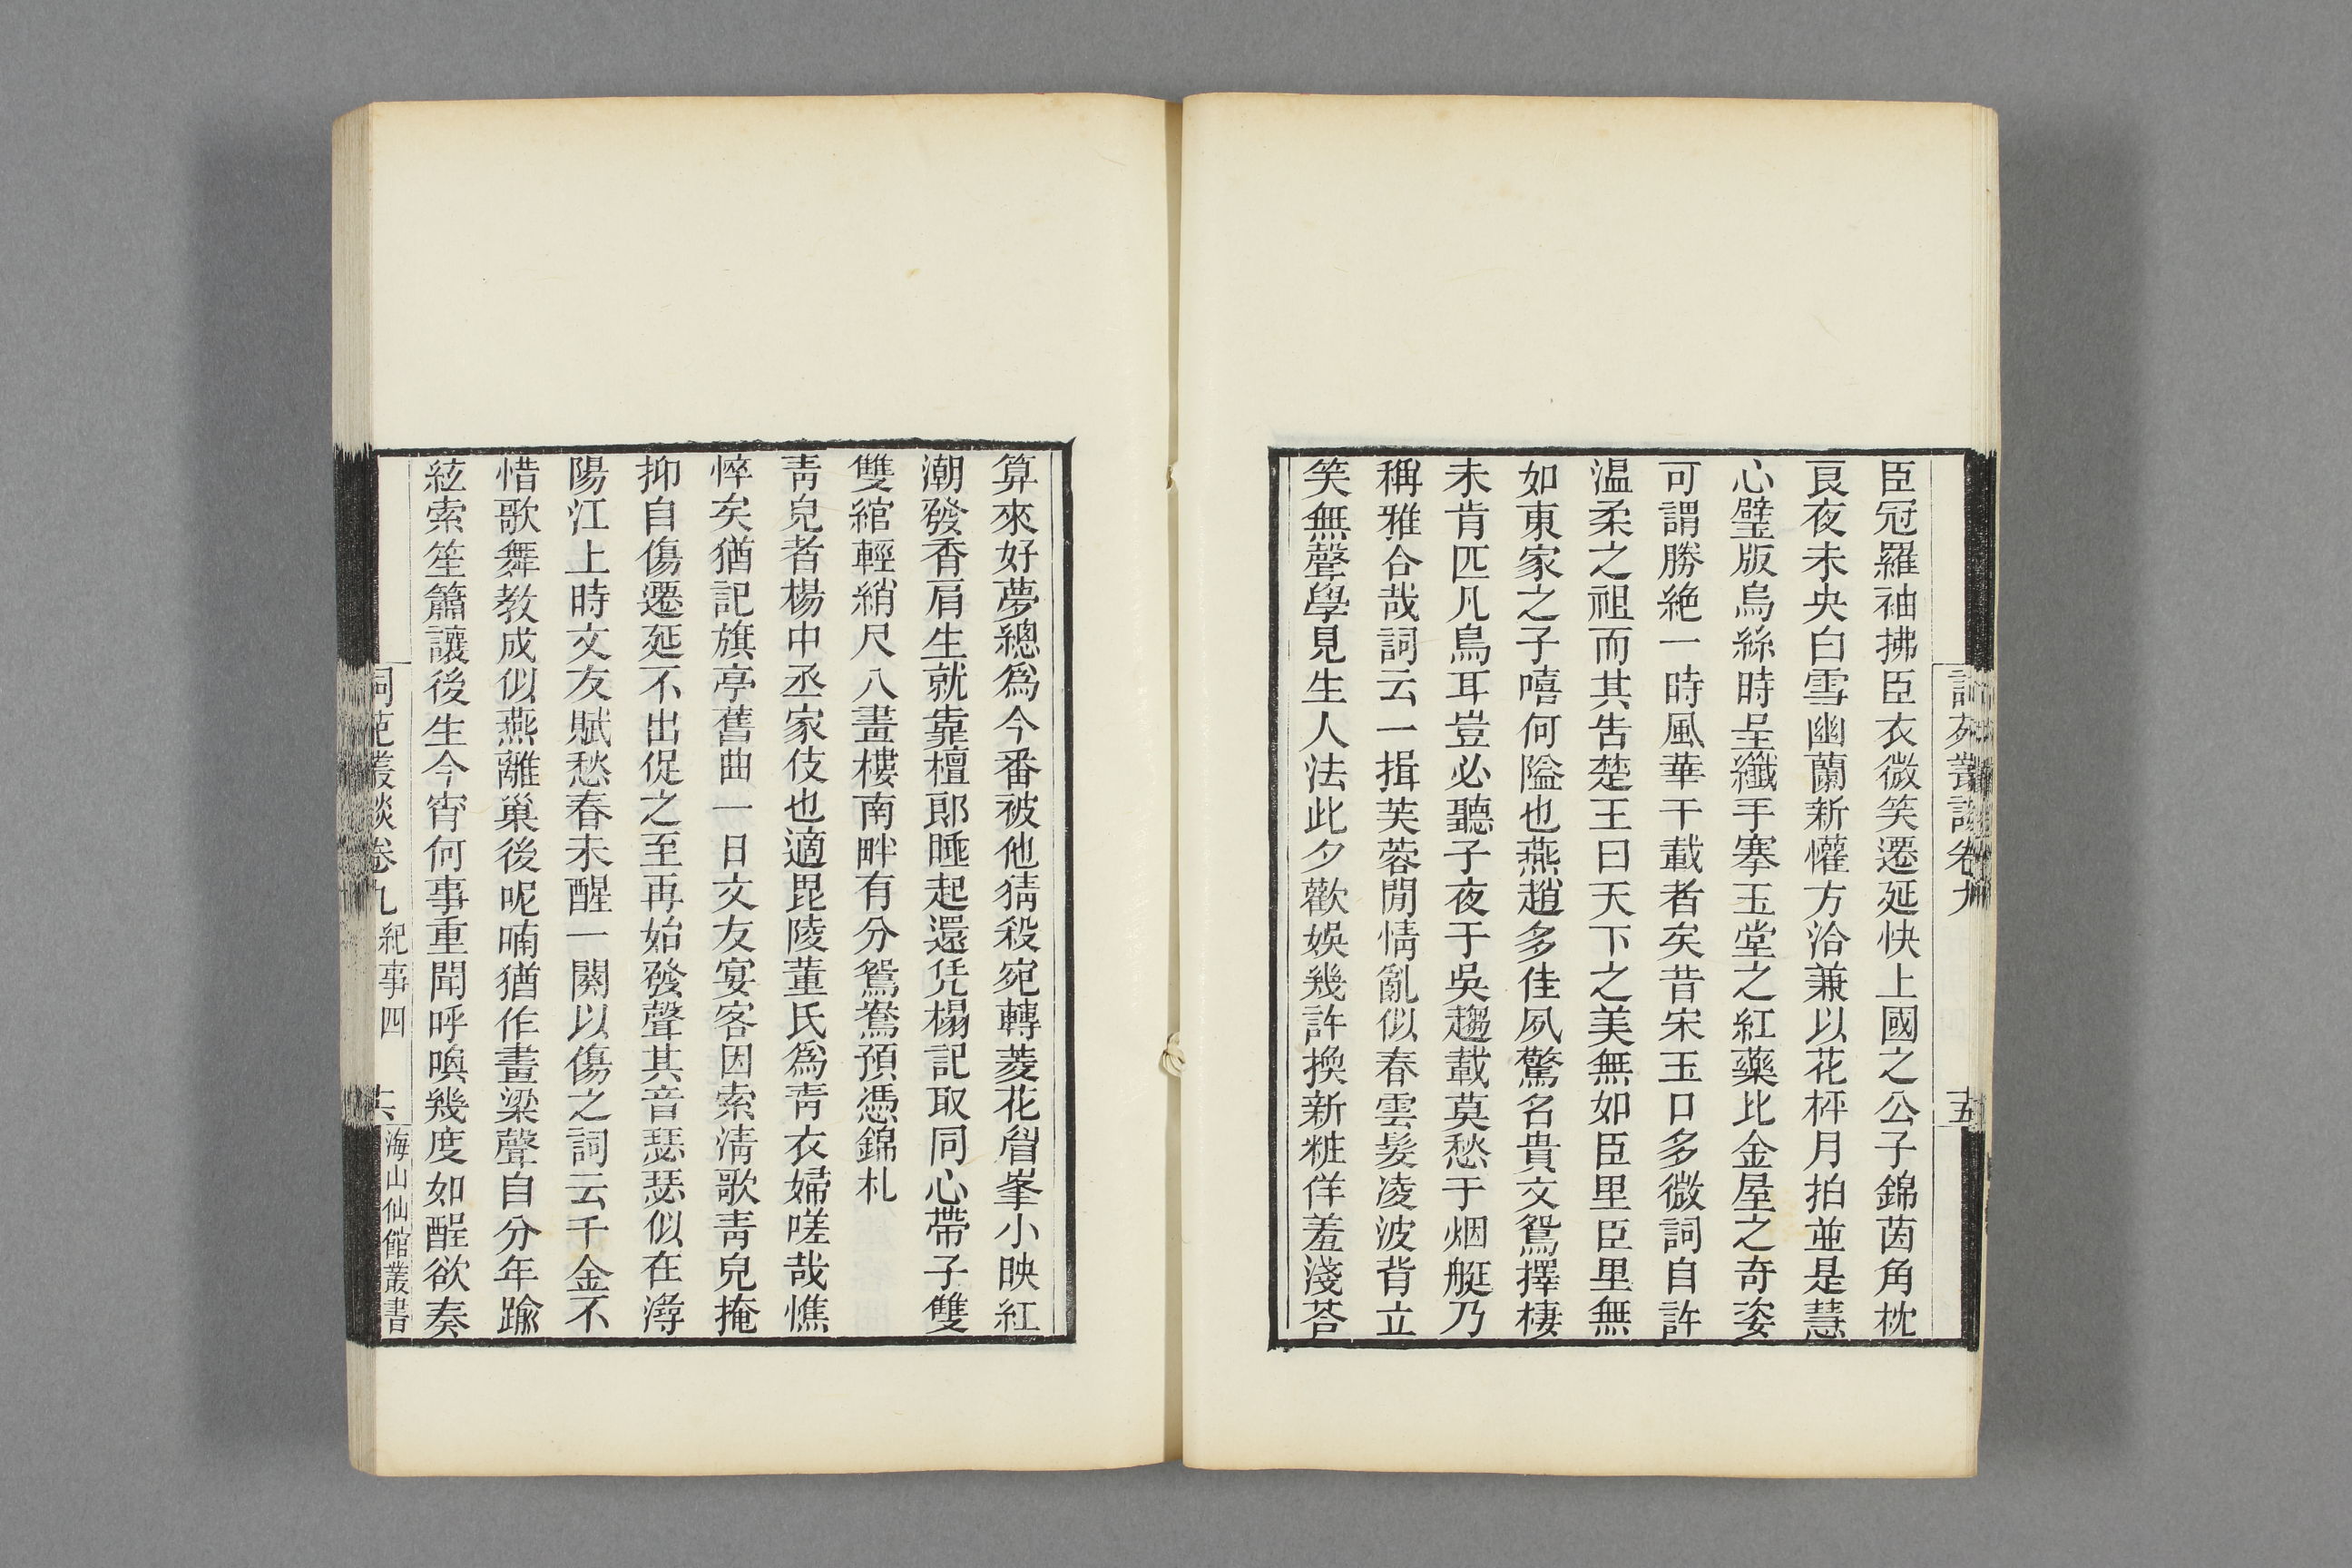 詞苑叢談卷九
十五
臣冠羅袖拂臣衣微笑遷延快上國之公子錦茵角枕
良夜未央白雪幽蘭新懽方洽兼以花枰月拍並是慧
心璧版烏絲時呈纖手搴玉堂之紅藥比金屋之奇姿
可謂勝絶一時風華千載者矣昔宋玉口多微詞自許
温柔之祖而其吿楚王曰天下之美無如臣里臣里無
如東家之子嘻何隘也燕趙多佳夙驚名貴文鴛擇棲
未肯匹凡鳥耳豈必聽子夜于吳趨載莫愁于烟艇乃
稱雅合哉詞云一揖芙蓉閒情亂似春雲髮凌波背立
笑無聲學見生人法此夕歡娛幾許換新粧佯羞淺荅
算來好夢總爲今番被他猜殺宛轉菱花眉峯小映紅
潮發香肩生就靠檀郎睡起還凭榻記取同心帶子雙
雙綰輕綃尺八畫樓南畔有分鴛鴦預憑錦札
靑兒者楊中丞家伎也適毘陵董氏爲靑衣婦嗟哉憔
悴矣猶記旗亭舊曲一日文友宴客因索淸歌靑兒掩
抑自傷遷延不出促之至再始發聲其音瑟瑟似在潯
陽江上時文友賦愁春未醒一闋以傷之詞云千金不
惜歌舞教成似燕離巢後呢喃猶作畫梁聲自分年踰
絃索笙簫讓後生今宵何事重聞呼喚幾度如酲欲奏
詞苑叢談卷九 紀事四 十六 海山仙館叢書